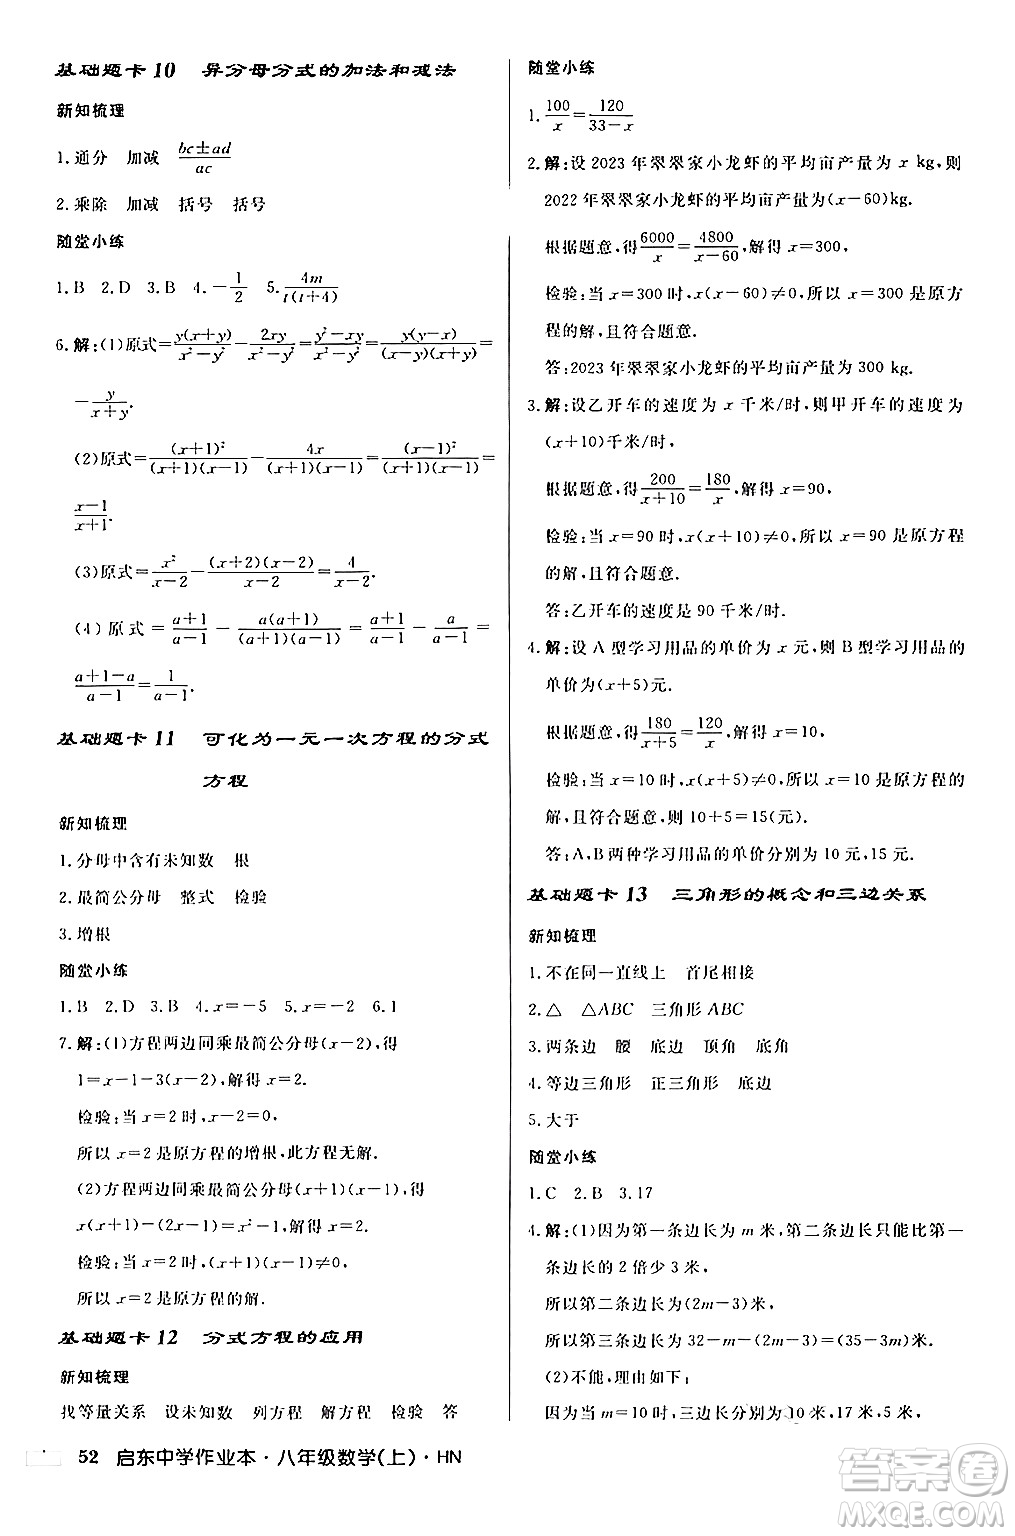 基础题卡 10　异分母分式的加法和减法
新知梳理
1.通分　加减　(bc±ad)/(ac)
2.乘除　加减　括号　括号
随堂小练
1.B　2.D　3.B　4.-1/2　5.4m/(t(t+4))
6.解:(1)原式=y(x+y)/(x²-y²)-2xy/(x²-y²)=(y²-xy)/(x²-y²)=y(y-x)/((x-y)(x+y))=
-y/(x+y).
(2)原式=(x+1)²/((x+1)(x-1))-4x/((x+1)(x-1))=(x-1)²/((x+1)(x-1))=
(x-1)/(x+1).
(3)原式=x²/(x-2)-(x+2)(x-2)/(x-2)=4/(x-2).
(4)原式=(a+1)/(a-1)-a(a+1)/((a+1)(a-1))=(a+1)/(a-1)-a/(a-1)=
(a+1-a)/(a-1)=1/(a-1).
基础题卡 11　可化为一元一次方程的分式
方程
新知梳理
1.分母中含有未知数　根
2.最简公分母　整式　检验
3.增根
随堂小练
1.B　2.D　3.B　4.x=-5　5.x=-2　6.1
7.解:(1)方程两边同乘最简公分母(x-2),得
1=x-1-3(x-2),解得 x=2.
检验:当 x=2 时,x-2=0,
所以 x=2 是原方程的增根,此方程无解.
(2)方程两边同乘最简公分母(x+1)(x-1),得
x(x+1)-(x²-1)=3,解得 x=2.
检验:当 x=2 时,(x+1)(x-1)≠0,
所以 x=2 是原方程的解.
基础题卡 12　分式方程的应用
新知梳理
找等量关系　设未知数　列方程　解方程　检验　答
52　启东中学作业本·八年级数学(上)·HN
随堂小练
1.100/x=120/(33-x)
2.解:设 2023 年翠翠家小龙虾的平均亩产量为 x kg,则
2022 年翠翠家小龙虾的平均亩产量为(x-60)kg.
根据题意,得6000/x=4800/(x-60),解得 x=300,
检验:当 x=300 时,x(x-60)≠0,所以 x=300 是原方
程的解,且符合题意.
答:2023 年翠翠家小龙虾的平均亩产量为 300 kg.
3.解:设乙开车的速度为 x 千米/时,则甲开车的速度为
(x+10)千米/时.
根据题意,得200/(x+10)=180/x,解得 x=90,
检验:当 x=90 时,x(x+10)≠0,所以 x=90 是原方程
的解,且符合题意.
答:乙开车的速度是 90 千米/时.
4.解:设 A 型学习用品的单价为 x 元,则 B 型学习用品的
单价为(x+5)元.
根据题意,得180/(x+5)=120/x,解得 x=10,
检验:当 x=10 时,x(x+5)≠0,所以 x=10 是原方程的
解,且符合题意,所以 10+5=15(元).
答:A,B 两种学习用品的单价分别为 10 元,15 元.
基础题卡 13　三角形的概念和三边关系
新知梳理
1.不在同一直线上　首尾相接
2.△　△ABC　三角形 ABC
3.两条边　腰　底边　顶角　底角
4.等边三角形　正三角形　底边
5.大于
随堂小练
1.C　2.B　3.17
4.解:(1)因为第一条边长为 m 米,第二条边长只能比第一
条边长的 2 倍少 3 米,
所以第二条边长为(2m-3)米,
所以第三条边长为 32-m-(2m-3)=(35-3m)米.
(2)不能,理由如下:
因为当 m=10 时,三边长分别为 10
答案圈
MXQE.COM